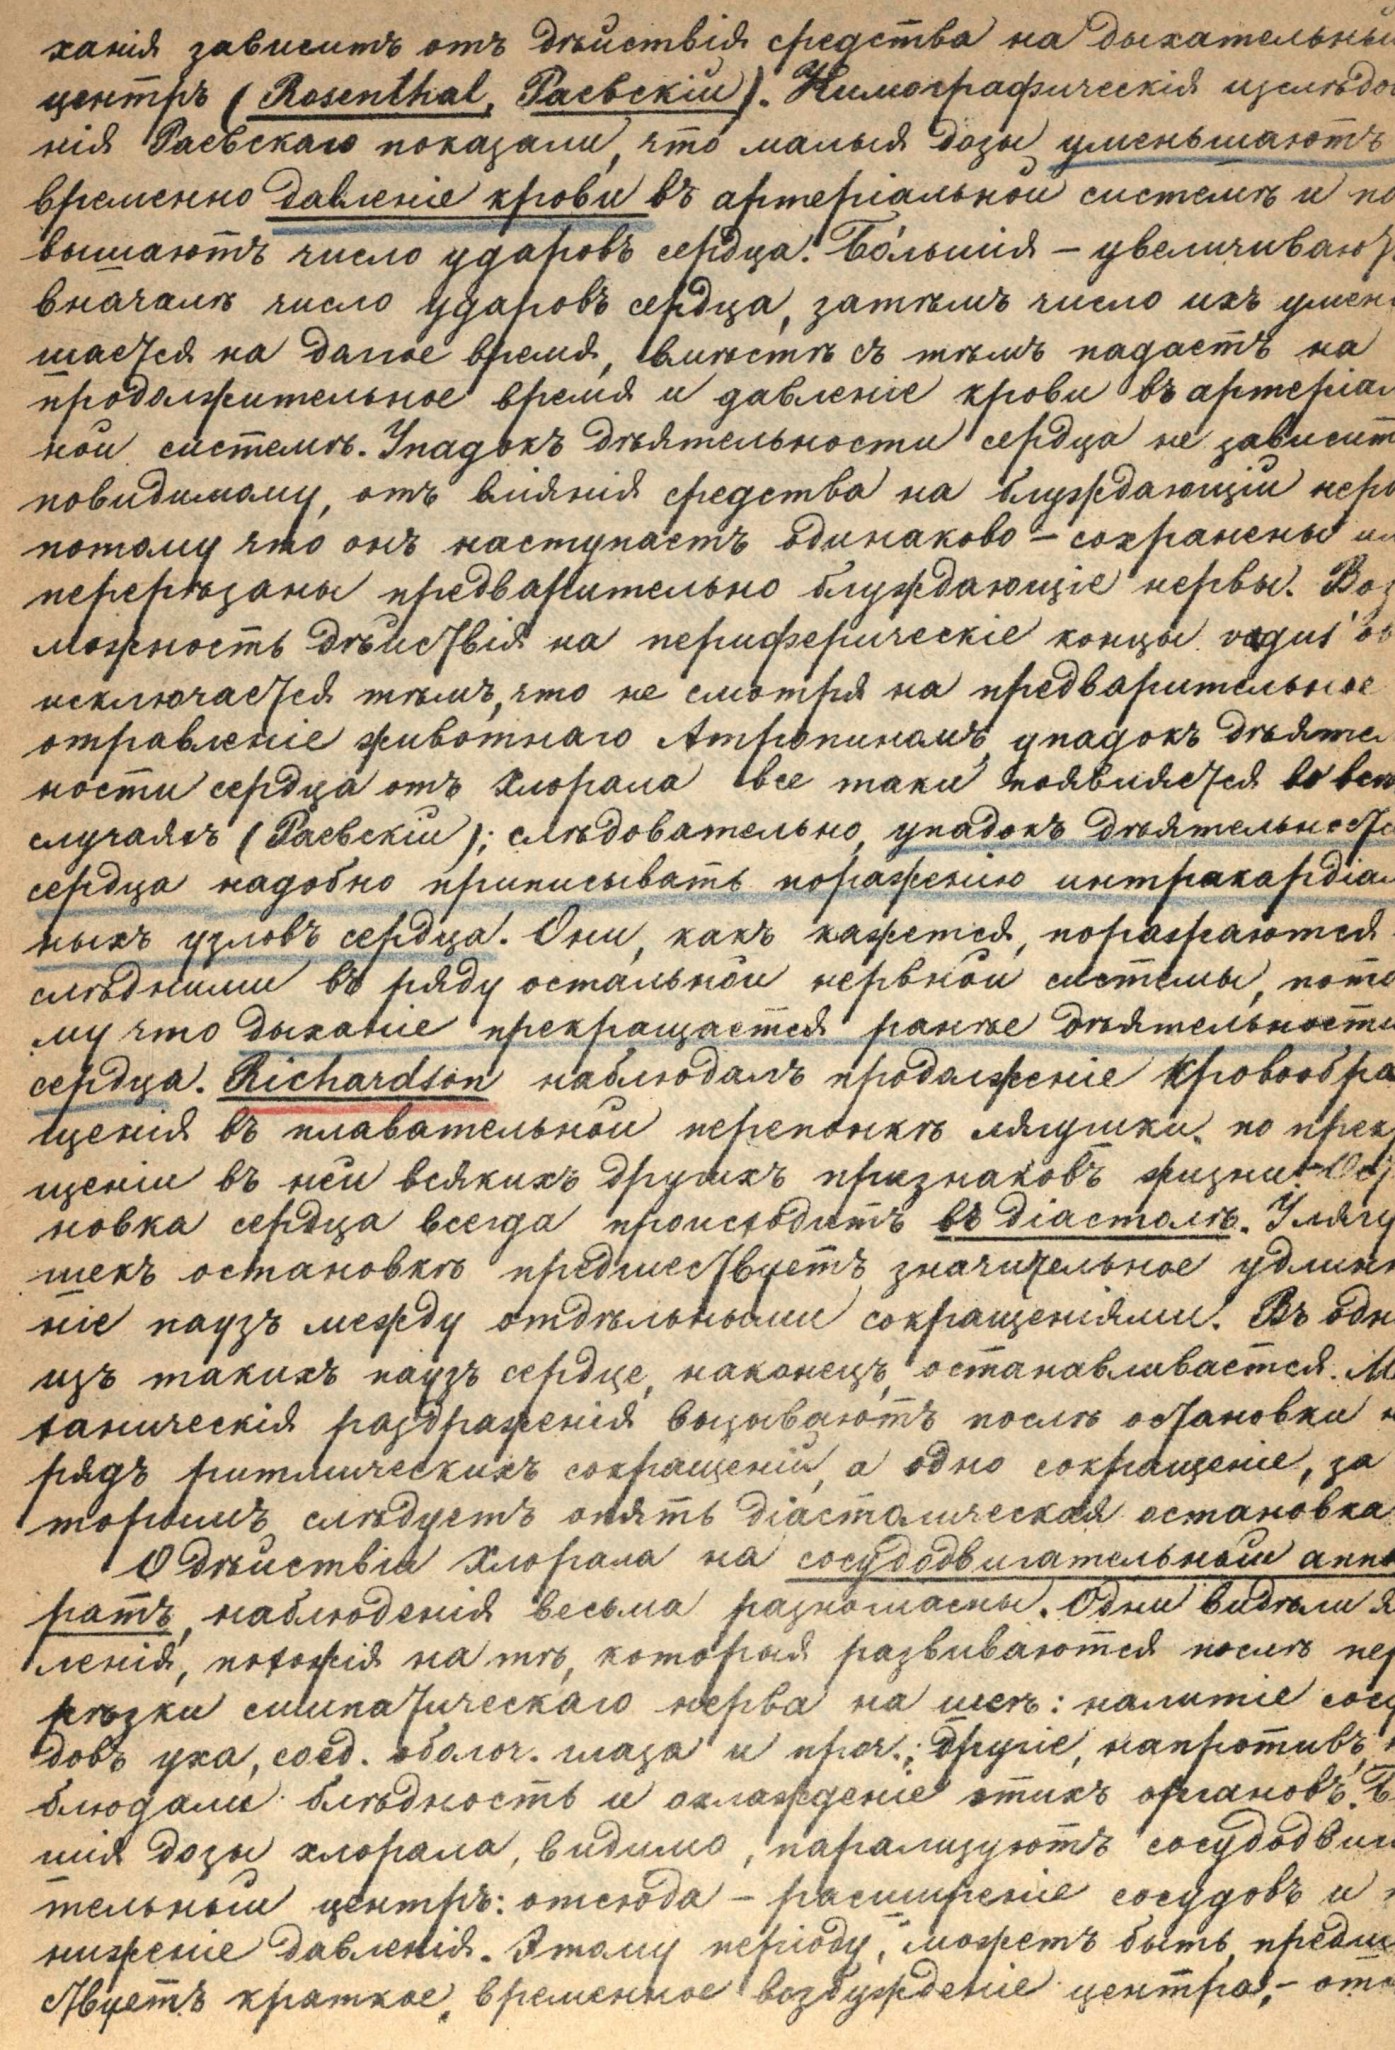 ханія зависитъ отъ дѣйствія средства на дыхательный
центръ (Rosenthal, Раевскій). Кимографическія изслѣдо
нія Раевскаго показали, что малыя дозы уменьшаютъ
временно давленіе крови въ артеріальной системѣ и по
вышаютъ число ударовъ сердца. Бо́льшія – увеличиваю
вначалѣ число ударовъ сердца, затѣмъ число ихъ умен
шается на далее время, вмѣстѣ съ тѣмъ падаетъ на
продолжительное время и давленіе крови въ артеріал
ной системѣ. Упадокъ дѣятельности сердца не зависит
повидимому, отъ вліянія средства на блуждающій нерв
потому что онъ наступаетъ одинаково – сохранены ил
перерѣзаны предварительно блуждающіе нервы. Воз
можность дѣйствія на периферическіе концы vagus'ов
исключается тѣмъ, что не смотря на предварительное
отравленіе животнаго Атропиномъ, упадокъ дѣяте
ности сердца отъ Хлорала все таки появляется во всѣ
случаяхъ (Раевскій); слѣдовательно, упадокъ дѣятельност
сердца надобно приписывать пораженію интракардіал
ныхъ узловъ сердца. Они, какъ кажется, поражаются
слѣдними въ ряду остальной нервной системы, пото
му что дыханіе прекращается ранѣе дѣятельности
сердца. Richardson наблюдалъ продолженіе кровообра
щенія въ плавательной перепонкѣ лягушки по прек
щеніи въ ней всякихъ другихъ признаковъ жизни. Ост
новка сердца всегда происходитъ въ діастолѣ. У лягу
шекъ остановкѣ предшествуетъ значительное удлин
ніе паузъ между отдѣльными сокращеніями. Въ одн
изъ такихъ паузъ сердце, наконецъ, останавливается. Ме
ханическія раздраженія вызываютъ послѣ остановки н
рядъ ритмическихъ сокращеній, а одно сокращеніе, за
торымъ слѣдуетъ опять діастолическая остановка
О дѣйствіи Хлорала на сосудодвигательный аппа
ратъ, наблюденія весьма разногласны. Одни видѣли я
ленія, похожія на тѣ, которыя развиваются послѣ пер
рѣзки симпатическаго нерва на шеѣ: налитіе сосу
довъ уха, соед. оболоч. глаза и проч.; другіе, напротивъ, н
блюдали блѣдность и охлажденіе этихъ органовъ. Б
шія дозы хлорала, видимо, парализуютъ сосудодвиг
тельный центръ: отсюда – расширеніе сосудовъ и п
ниженіе давленія. Этому періоду, можетъ быть, предше
ствуетъ краткое, временное возбужденіе центра, – отс